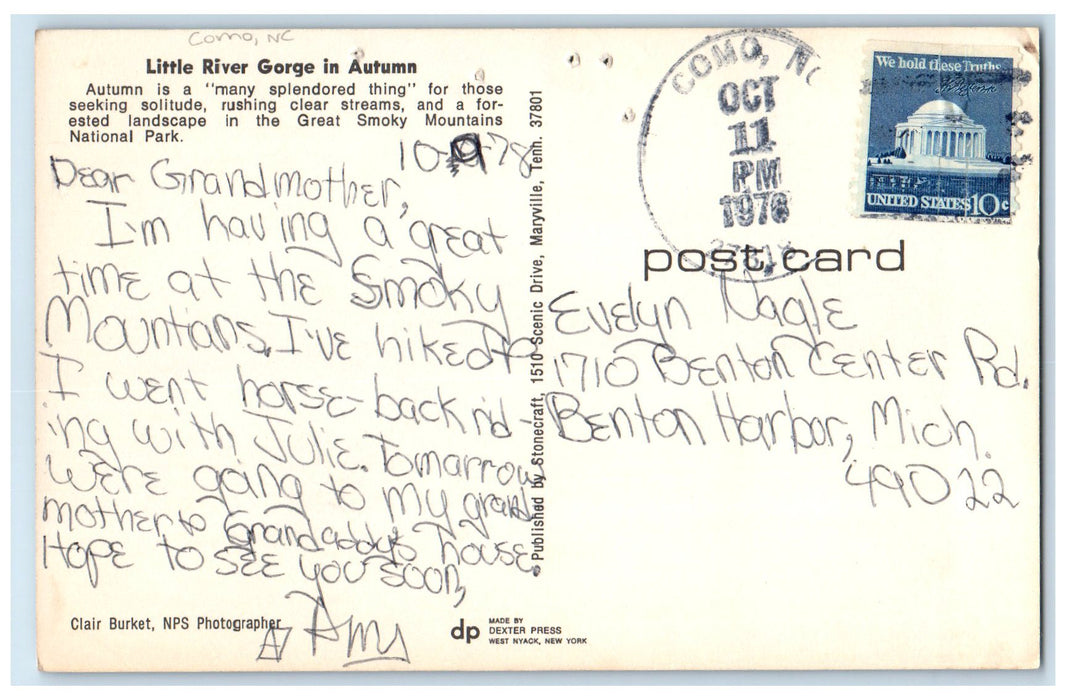 Como, NC
Little River Gorge in Autumn
Autumn is a "many splendored thing" for those
seeking solitude, rushing clear streams, and a for-
ested landscape in the Great Smoky Mountains
National Park.
10-9-78
Dear Grandmother,
I'm having a great
time at the Smoky
Mountians. I've hiked &
I went horse-back rid-
ing with Julie. Tomarrow
we're going to my grand
mother & Grandaddy's house.
Hope to see you soon,
Amy
Clair Burket, NPS Photographer
Published by Stonecraft, 1510 Scenic Drive, Maryville, Tenn. 37801
dp
MADE BY
DEXTER PRESS
WEST NYACK, NEW YORK
COMO, NC
OCT
11
PM
1978
We hold these Truths...
UNITED STATES 10c
post card
Evelyn Nagle
1710 Benton Center Rd.
Benton Harbor, Mich.
49022